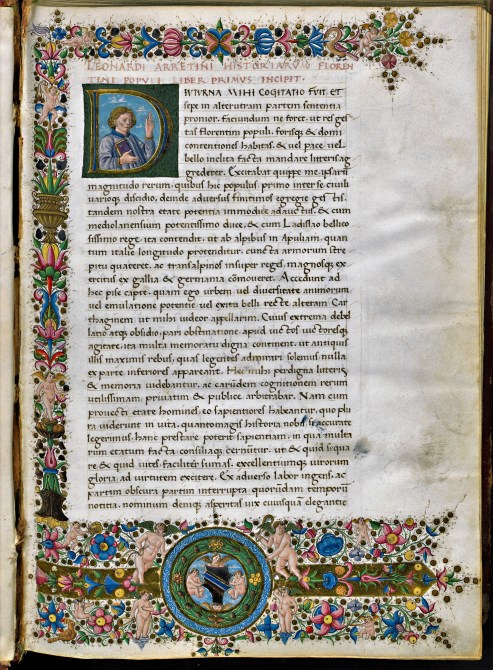 LEONARDI ARRETINI HISTORIARVM FLOREN
TINI POPVLI LIBER PRIMVS INCIPIT.
DIVTVRNA MIHI COGITATIO FVIT, ET
sepe in alterutram partem sententia
pronior, faciundum ne foret, ut res ges
tas florentini populi, forisq; & domi
contentiones habitas, & uel pace, uel
bello inclita facta mandare litteris ag
grederer. Excitabat quippe me ipsaru
magnitudo rerum, quibus hic populus, primo inter se ciuili
uarioq; discidio, deinde aduersus finitimos egregie gestis,
tandem nostra etate potentia immodice adauctus, & cum
mediolanensi potentissimo duce, & cum Ladislao bellico
sissimo rege ita contendit, ut ab alpibus in Apuliam, quan
tum italie longitudo protenditur, cuncta armorum stre
pitu quateret, ac transalpinos insuper reges, magnosq; ex
ercitus ex gallia & germania cōmoueret. Accedunt ad
hec pise capte, quam ego urbem uel diuersitate animorum
uel emulatione potentie uel exitu belli recte alteram Car
thaginem, ut mihi uideor appellarim. Cuius extrema debel
latio atq; obsidio, pari obstinatione apud uictos uictoresq;
agitate, ita multa memoratu digna continent, ut antiquis
illis maximis rebus, quas legentes admirari solemus nulla
ex parte inferiores appareant. Hec mihi perdigna litteris
& memoria uidebantur, ac earūdem cognitionem rerum
utilissimam, priuatim & publice arbitrabar. Nam cum
prouecti etate homines, eo sapientiores habeantur, quo plu
ra uiderunt in uita, quanto magis historia nobis, si accurate
legerimus, hanc prestare poterit sapientiam, in qua multa
rum etatum facta consiliaq; cernūtur, ut & quid sequa
re & quid uites faciliter sumas, excellentiumq; uirorum
gloria, ad uirtutem excitere. Ex aduerso labor ingens, ac
partim obscura partim interrupta quorūdam temporū
notitia, nominum deniq; asperitas uix cuiusquam elegantie